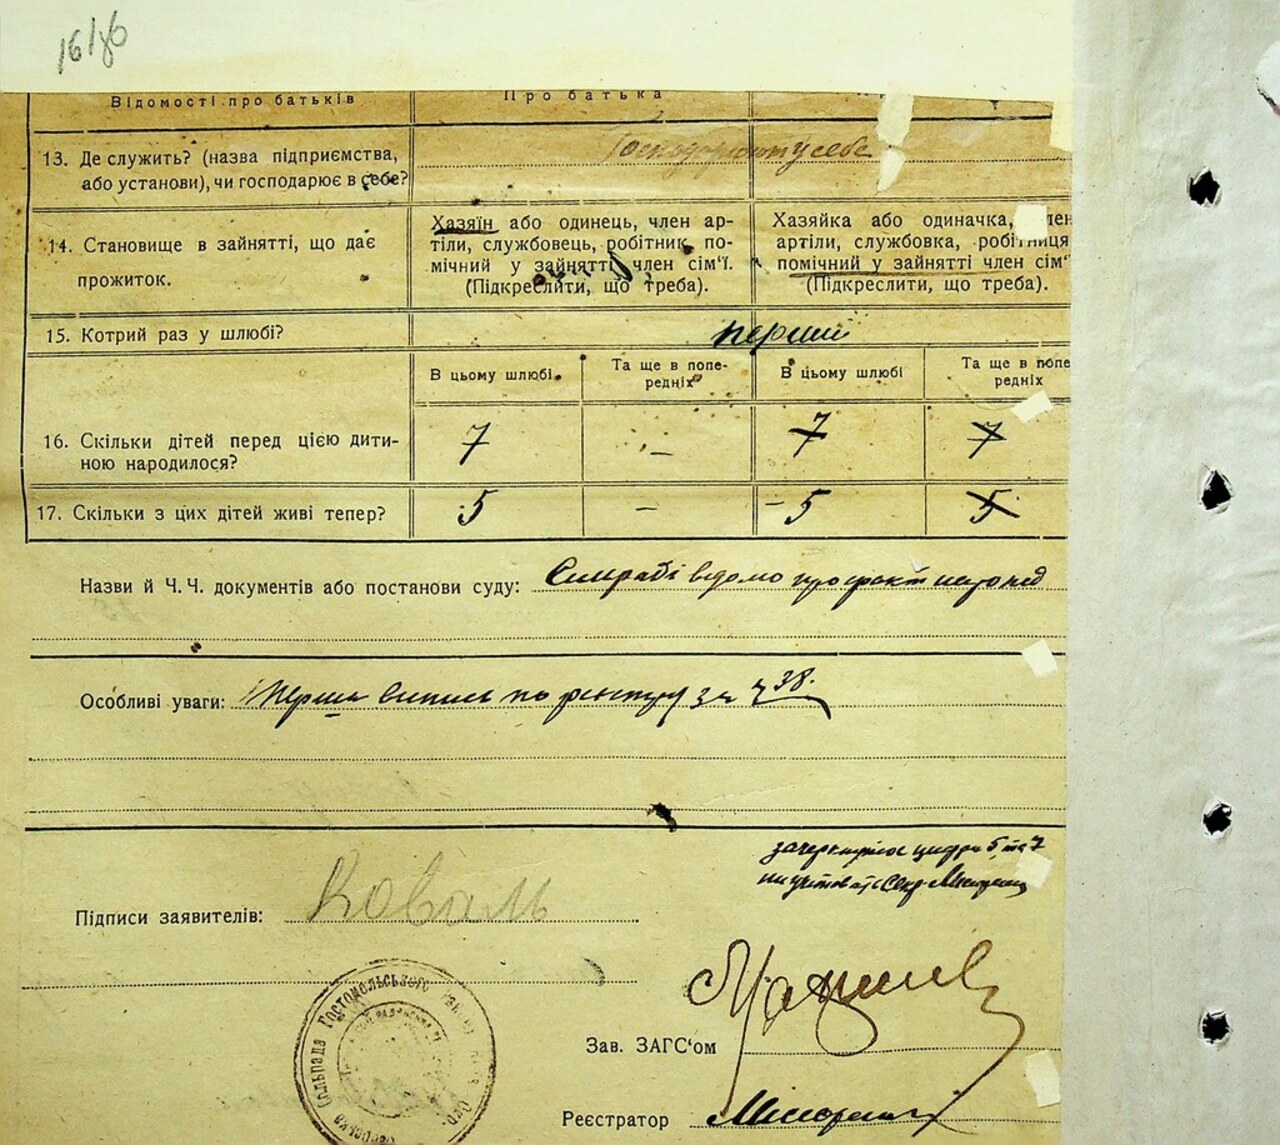 16/86
Відомості про батьків Про батька
13. Де служить? (назва підприємства,
або установи), чи господарює в себе?
Господарюють у себе
14. Становище в зайнятті, що дає
прожиток.
Хазяїн або одинець, член ар-
тіли, службовець, робітник, по-
мічний у зайнятті член сім'ї.
(Підкреслити, що треба).
Хазяйка або одиначка, член
артіли, службовка, робітниця
помічний у зайнятті член сім'
(Підкреслити, що треба).
15. Котрий раз у шлюбі? перший
В цьому шлюбі Та ще в попе-
редніх
В цьому шлюбі Та ще в попе
редніх
16. Скільки дітей перед цією дити-
ною народилося?
7 – 7 7
17. Скільки з цих дітей живі тепер? 5 – 5 5
Назви й Ч. Ч. документів або постанови суду: Сільраді відомо про факт
Особливі уваги: Перша випись по реєстру за ч 38.
цифри 5 та 7
Підписи заявителів: Коваль
Сільрада Гостомольського
Зав. ЗАГС'ом
Реєстратор